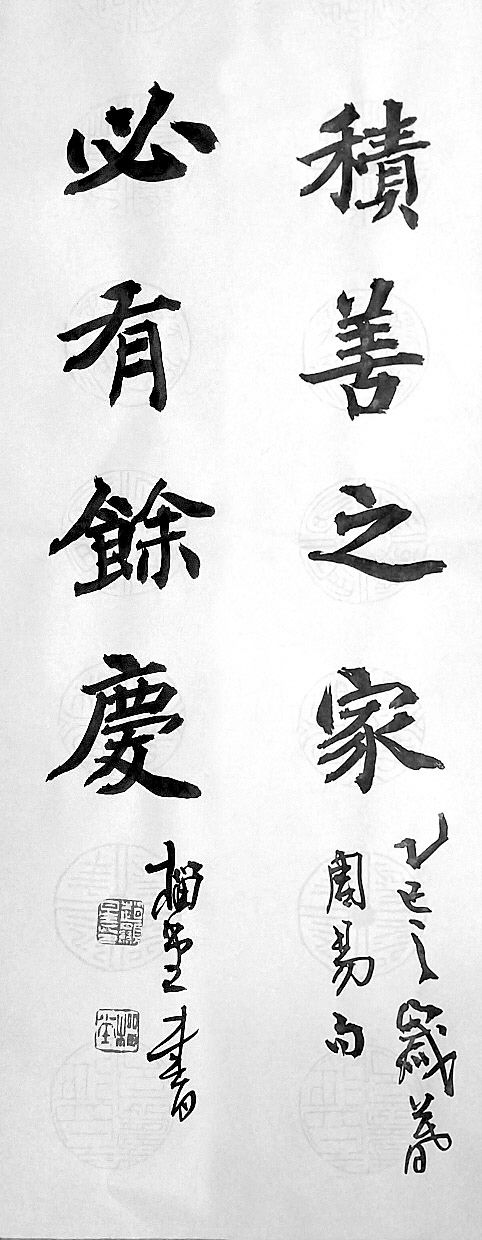 積善之家
乙巳之歲春
周易句
必有餘慶
堂書